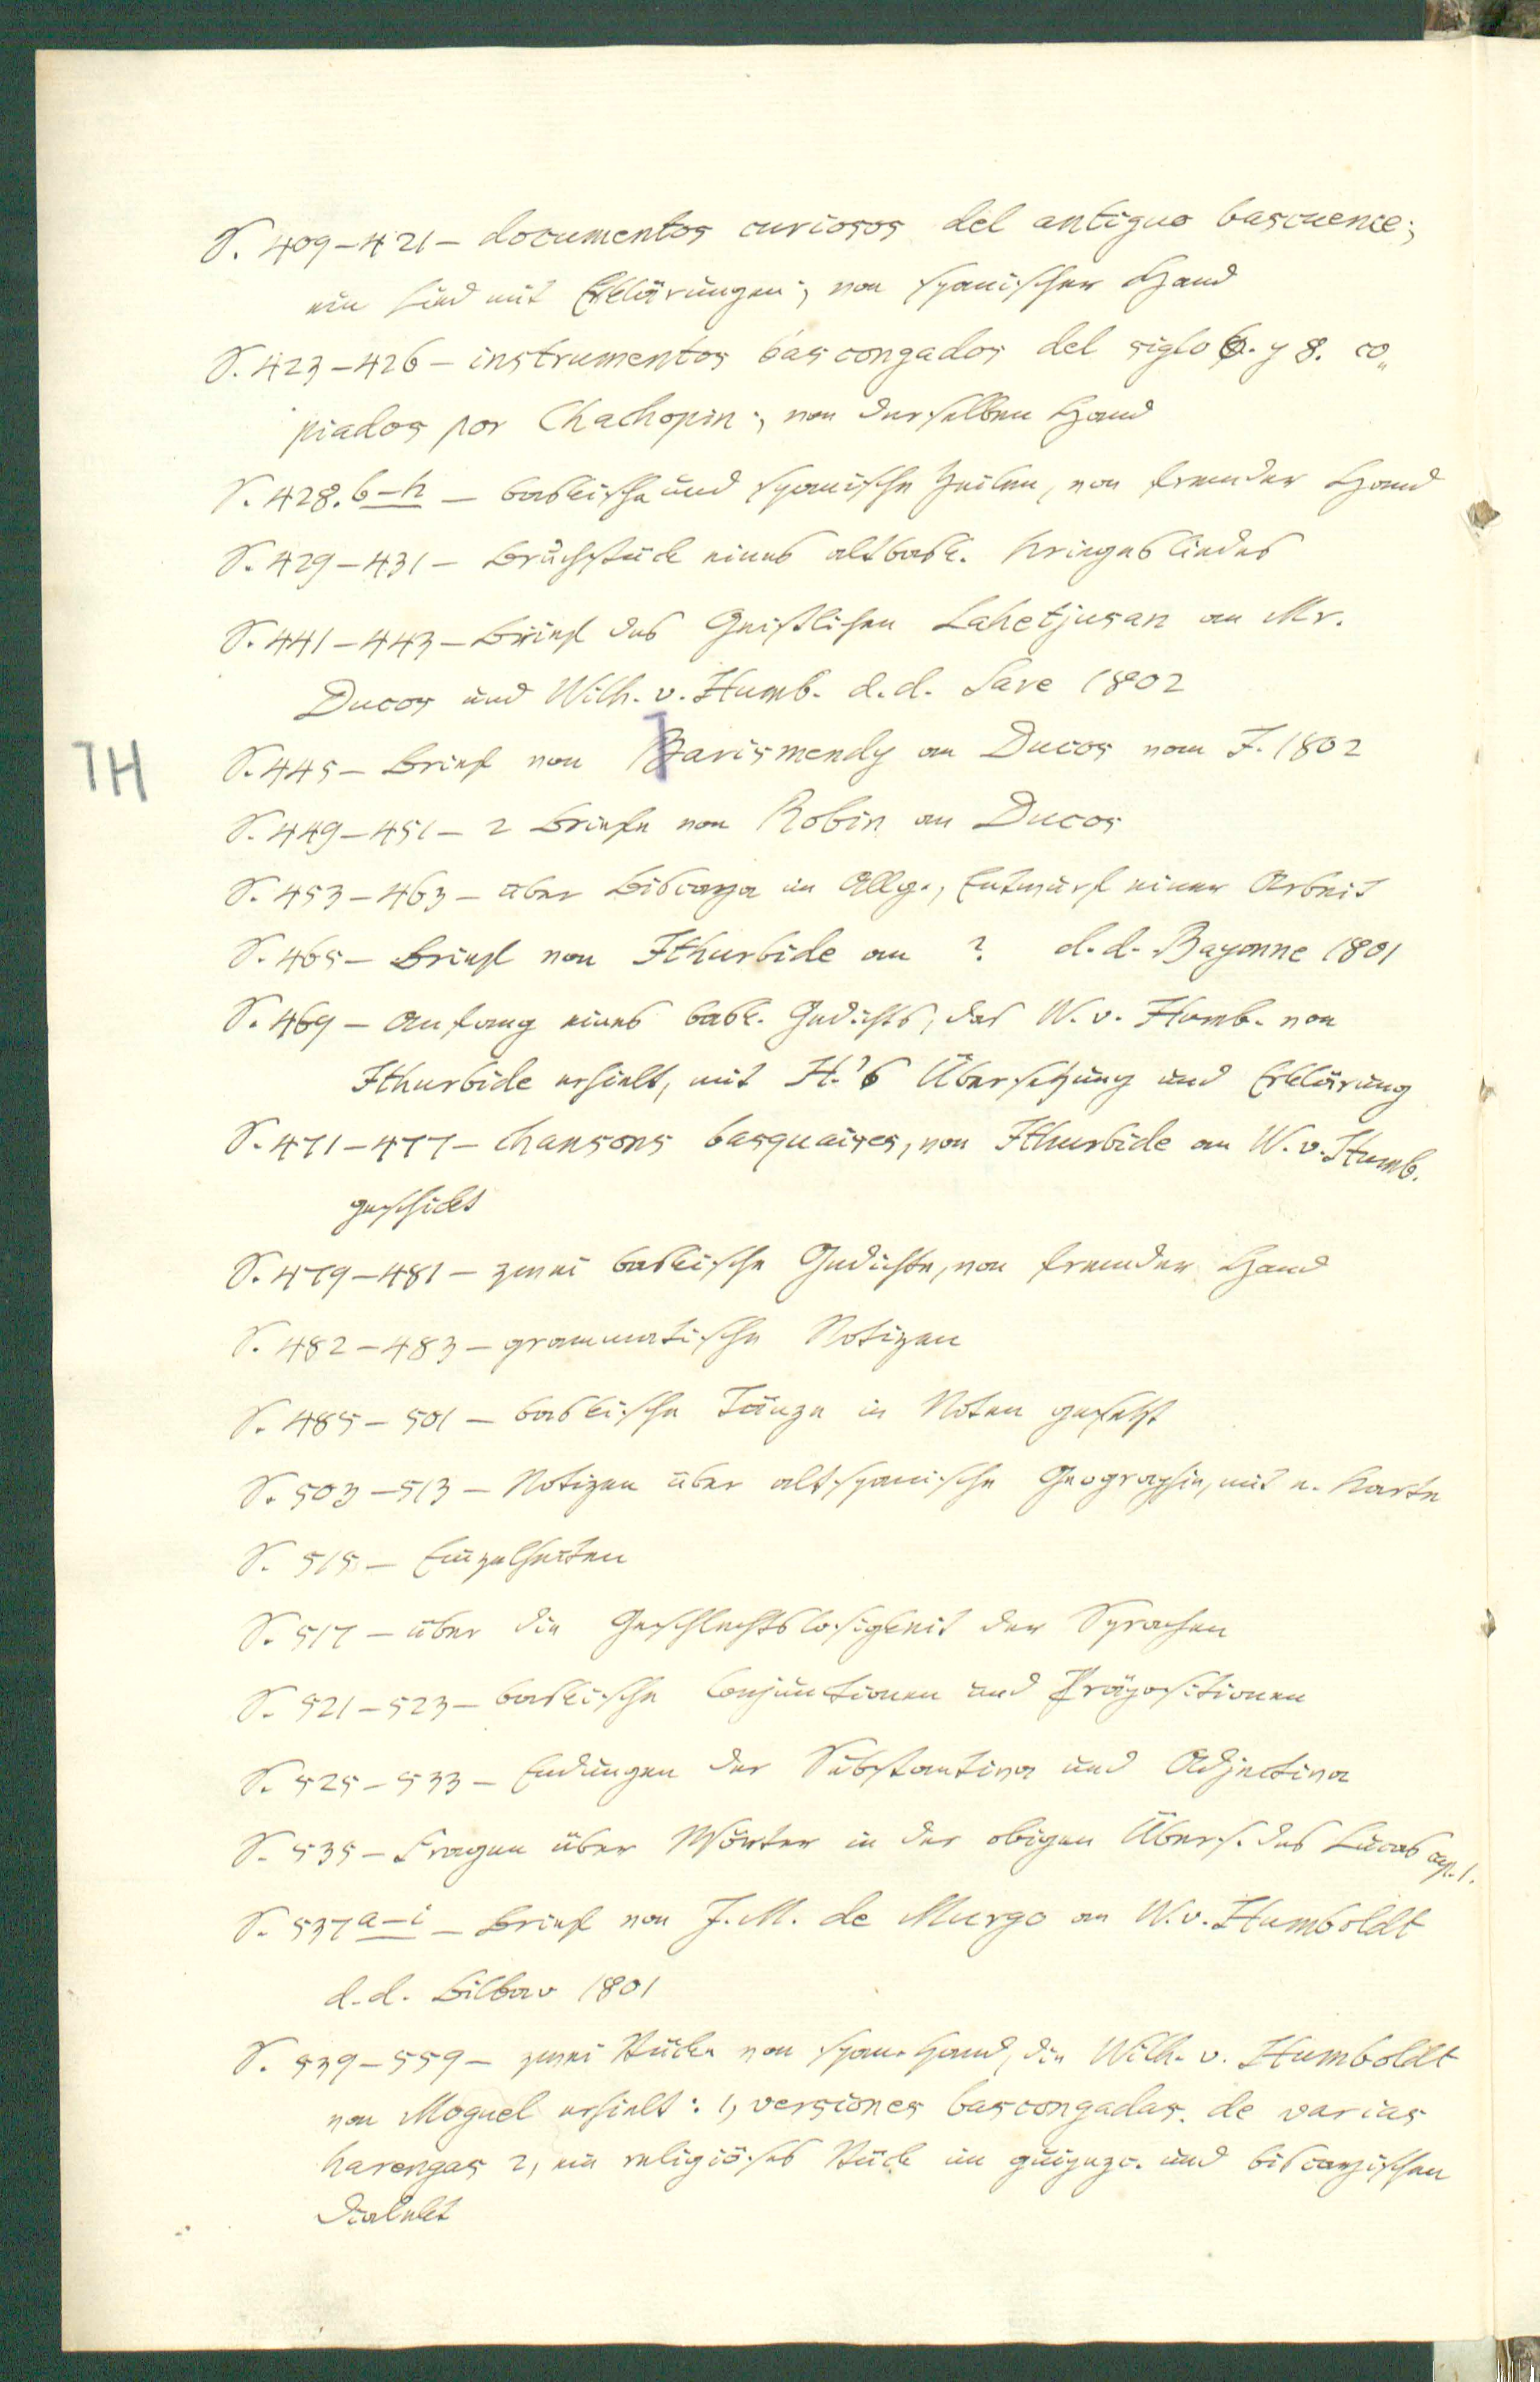 S. 409–421 – documentos curiosos del antiguo bascuence;
ein Lied mit Erklärungen; von spanischer Hand
S. 423–426 – instrumentos bascongados del siglo 6. y 8. co„
piados por Chachopin; von derselben Hand
S. 428. b–h – baskische und spanische Zeilen, von fremder Hand
S. 429–431 – Bruchstück eines altbask. Kriegesliedes
S. 441–443 – Brief des Geistlichen Lahetjusan an Mr.
Ducos und Wilh. v. Humb. d. d. Sare 1802
S. 445 – Brief von Harismendy an Ducos vom J. 1802
H
S. 449–451 – 2 Briefe von Robin an Ducos
S. 453–463 – über Biscaya im Allg., Entwurf einer Arbeit
S. 465 – Brief von Ithurbide an ? d. d. Bayonne 1801
S. 469 – Anfang eines bask. Gedichts, das W. v. Humb. von
Ithurbide erhielt, mit H.'s Übersetzung und Erklärung
S. 471–477 – chansons basquaises, von Ithurbide an W. v. Humb.
geschickt
S. 479–481 – zwei baskische Gedichte, von fremder Hand
S. 482–483 – grammatische Notizen
S. 485–501 – baskische Tänze in Noten gesetzt
S. 503–513 – Notizen über altspanische Geographie, mit e. Karte
S. 515 – Einzelheiten
S. 517 – über die Geschlechtslosigkeit der Sprachen
S. 521–523 – baskische Conjunctionen und Präpositionen
S. 525–533 – Endungen der Substantiva und Adjectiva
S. 535 – Fragen über Wörter in der obigen Übers. des Lucas cap. 1.
S. 537 a–i – Brief von J. M. de Murga an W. v. Humboldt
d. d. Bilbao 1801
S. 539–559 – zwei Stücke von span. Hand, die Wilh. v. Humboldt
von Moguel erhielt: 1, versiones bascongadas de varias
harengas 2, ein religiöses Stück im guipuzc. und biscayischen
Dialekt